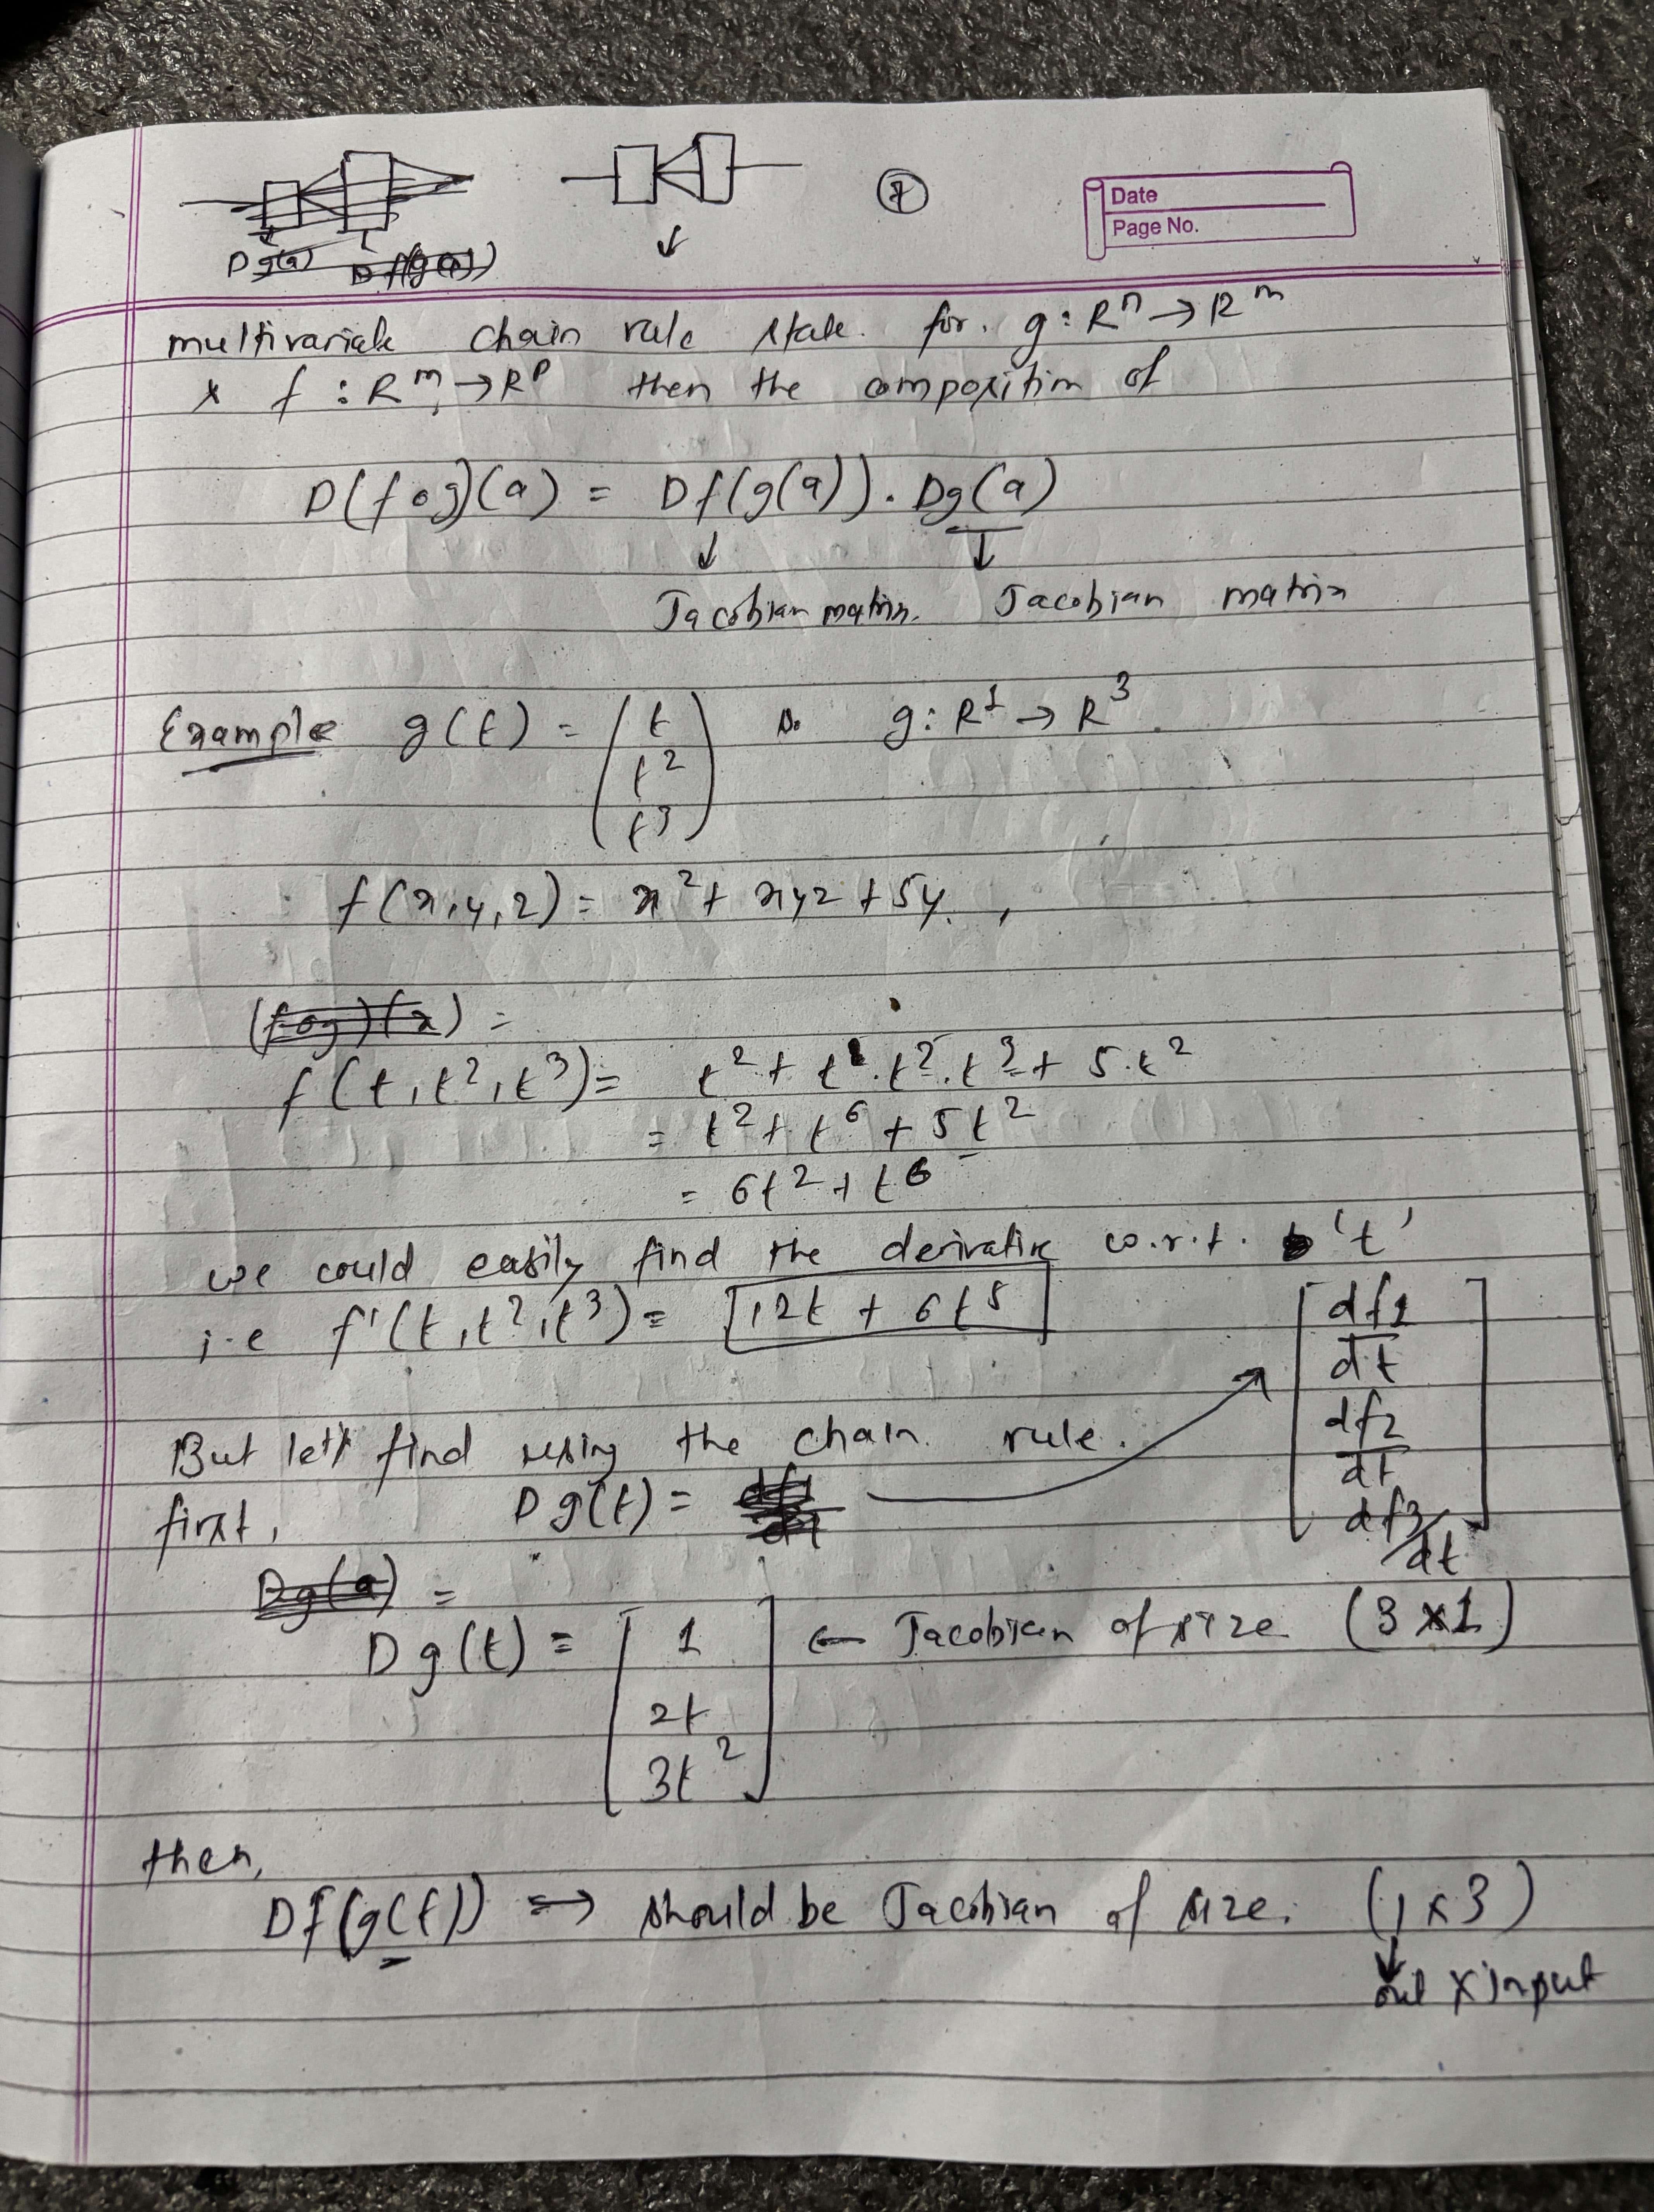 Dg(a) Df(g(a))
7
Date
Page No.
multivariate chain rule state. for. g: Rⁿ → Rᵐ
& f : Rᵐ → Rᵖ then the composition of
D(f∘g)(a) = Df(g(a)) . Dg(a)
↓ ↓
Jacobian matrix. Jacobian matrix
Example g(t) = (t
t²
t³) so g: R¹ → R³.
f(x,y,z) = x² + xyz + 5y.,
(fog)(x) =
f(t, t², t³) = t² + t¹.t².t³ + 5.t²
= t² + t⁶ + 5t²
= 6t² + t⁶
we could easily find the derivative w.r.t. 't'
i.e f'(t, t², t³) = 12t + 6t⁵
But let's find using the chain rule.
first, Dg(t) = df1/dt → [df1/dt
df2/dt
df3/dt]
Dg(a) =
Dg(t) = [1
2t
3t²] ← Jacobian of size (3×1)
then,
Df(g(t)) => should be Jacobian of size. (1×3)
↓
out × input